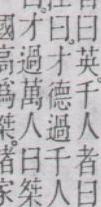 曰英千人者曰
曰。才德過千人
才過萬人曰桀
國高爲桀。者家